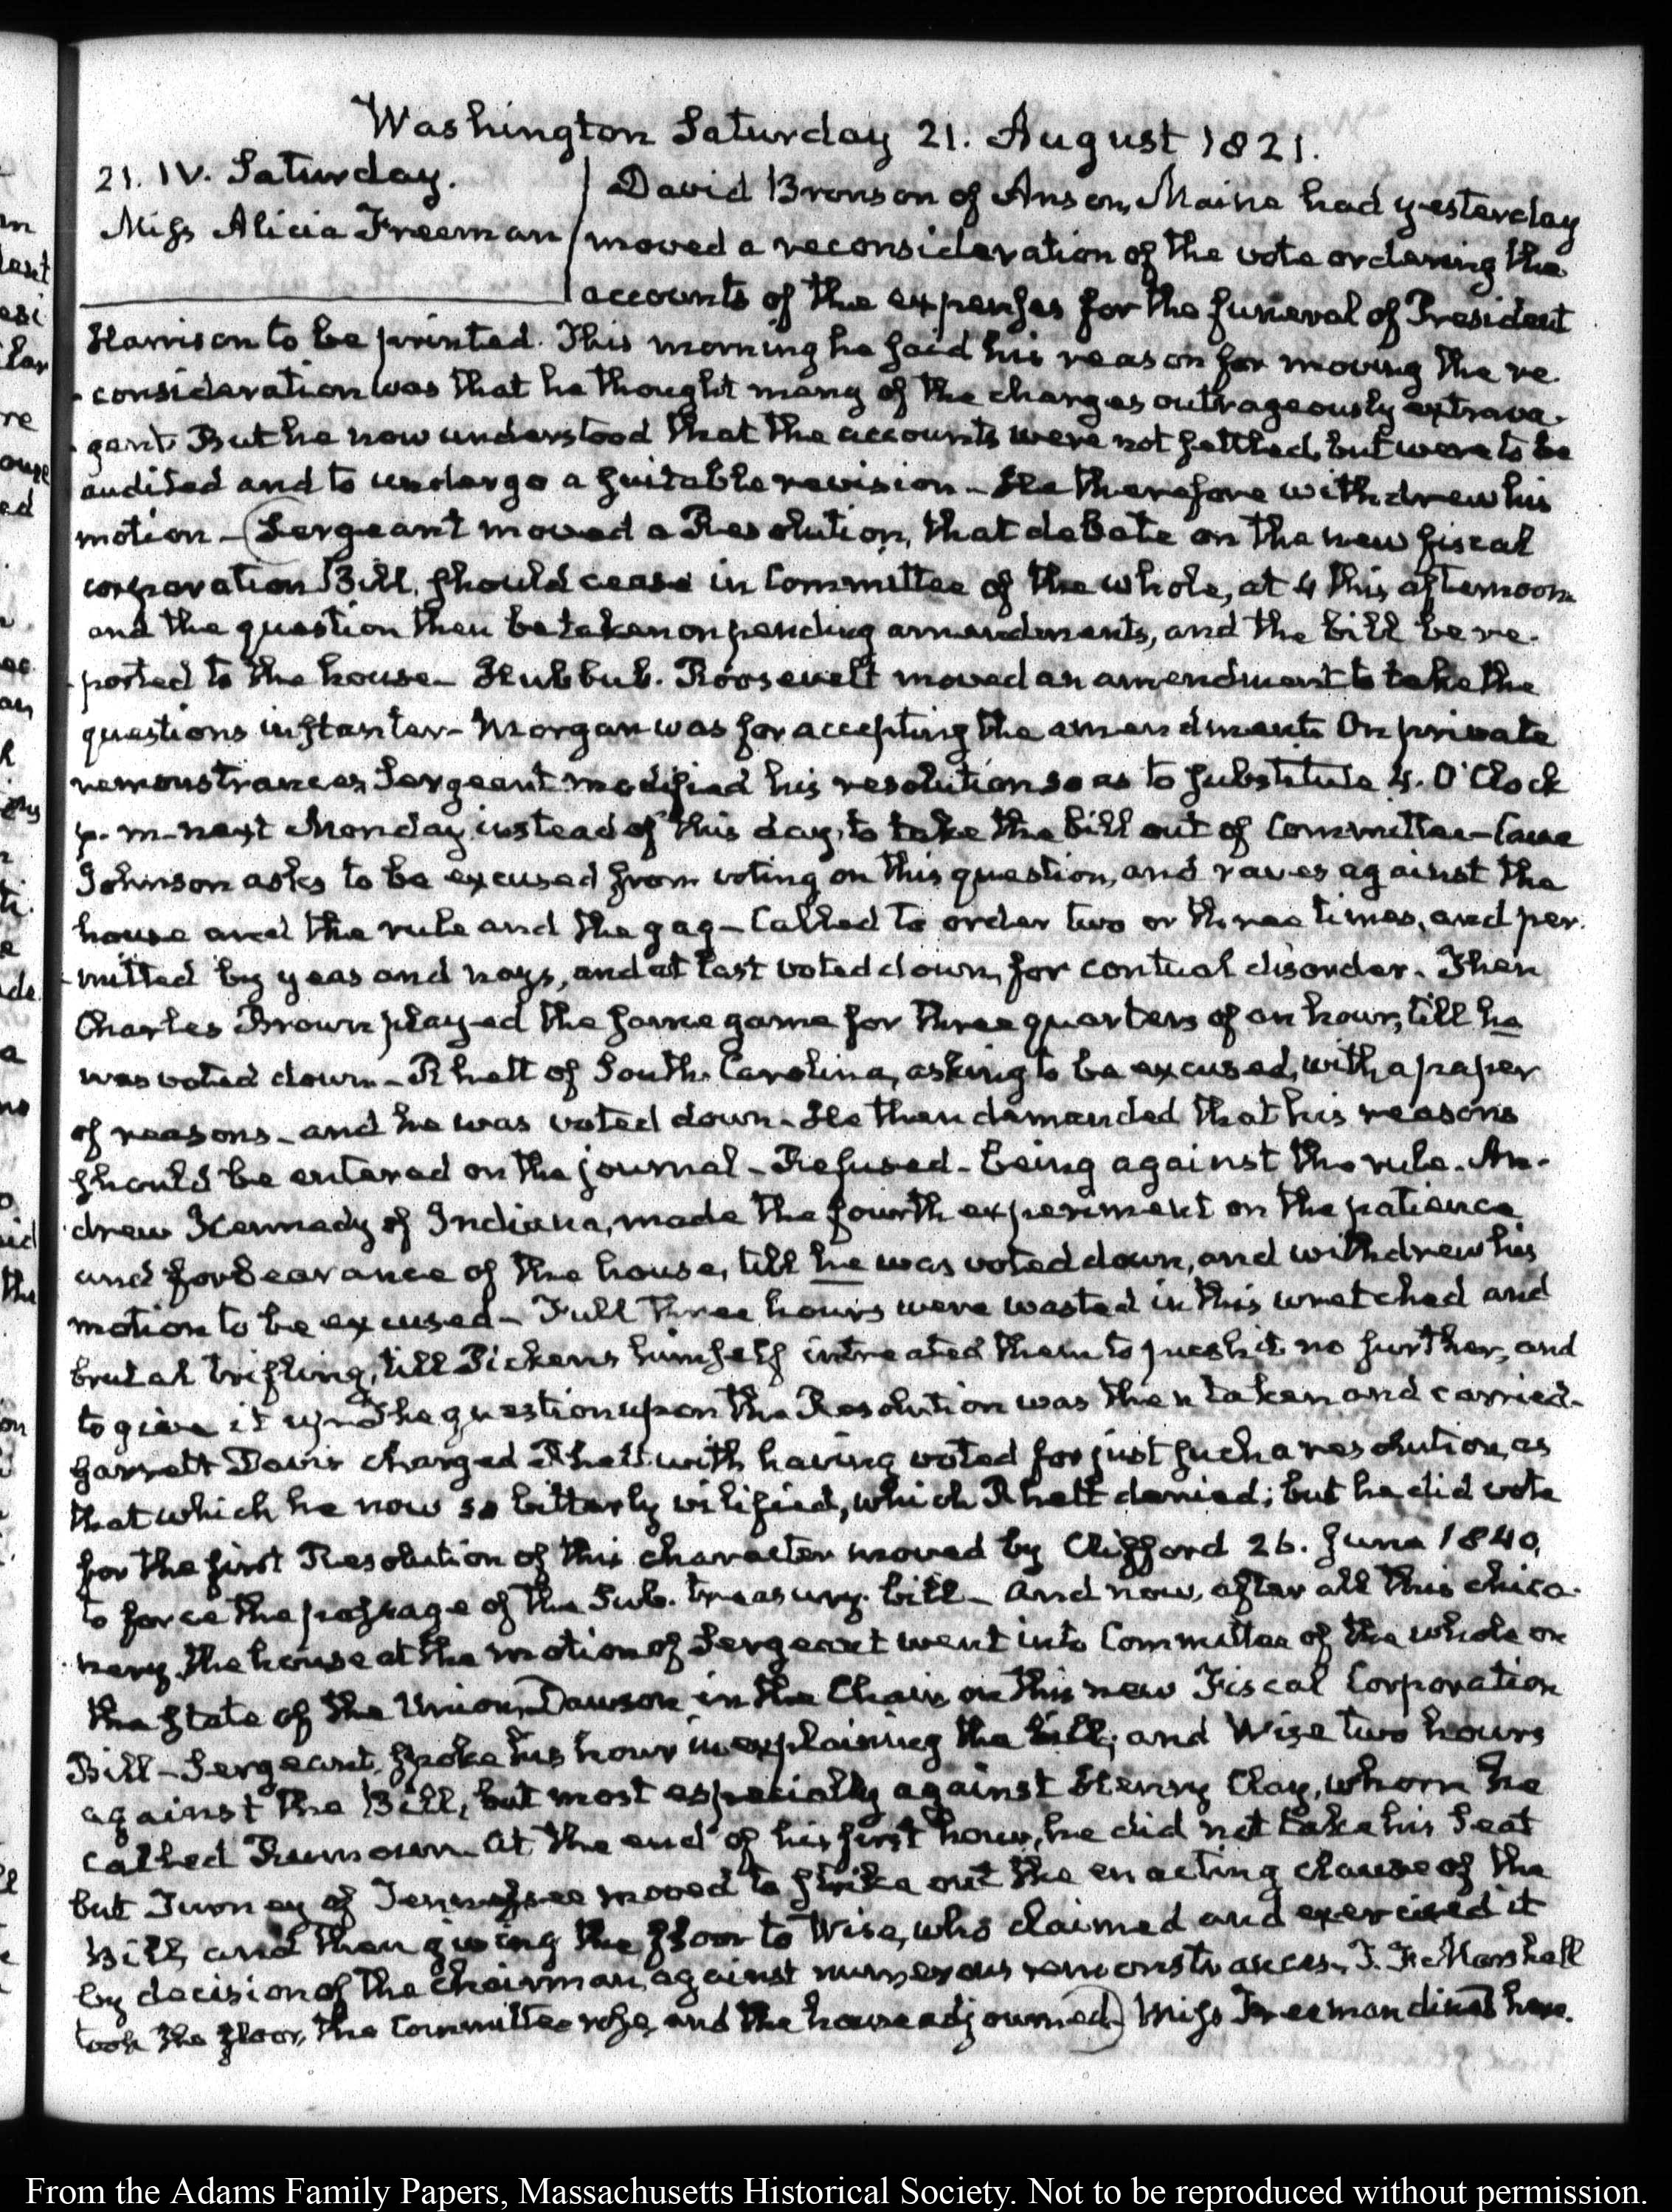 Washington Saturday 21. August 1821.
21. IV. Saturday.
Miss Alicia Freeman
David Bronson of Anson, Maine had yesterday
moved a reconsideration of the vote ordering the
accounts of the expenses for the funeral of President
Harrison to be printed. This morning he said his reason for moving the re-
-consideration was that he thought many of the charges outrageously extrava-
-gant. But he now understood that the accounts were not settled, but were to be
audited and to undergo a suitable revision - He therefore withdrew his
motion - (Sergeant moved a Resolution, that debate on the new fiscal
corporation Bill, should cease in Committee of the whole, at 4 this afternoon
and the question then be taken on pending amendments, and the bill be re-
-ported to the house - Hubbub. Roosevelt moved an amendment to take the
questions instanter - Morgan was for accepting the amendment. On private
remonstrances, Sergeant modified his resolution so as to substitute 4. O'Clock
p.m. next Monday, instead of this day, to take the bill out of Committee - Cave
Johnson asks to be excused from voting on this question, and raves against the
house and the rule and the gag - Called to order two or three times, and per-
-mitted by yeas and nays, and at last voted down, for contual disorder. Then
Charles Brown played the same game for three quarters of an hour, till he
was voted down - Rhett of South Carolina, asking to be excused, with a paper
of reasons - and he was voted down - He then demanded that his reasons
should be entered on the journal - Refused - being against the rule. An-
-drew Kennedy of Indiana, made the fourth experiment on the patience
and forbearance of the house, till he was voted down, and withdrew his
motion to be excused - Full three hours were wasted in this wretched and
brutal trifling, till Pickens himself intreated them to push it no further, and
to give it up. The question upon the Resolution was then taken and carried -
Garrett Davis charged Rhett with having voted for just such a resolution, as
that which he now so bitterly vilified, which Rhett denied; but he did vote
for the first Resolution of this character moved by Clifford 26. June 1840,
to force the passage of the Sub. treasury. bill - and now, after all this chica-
-nery, the house at the motion of Sergeant went into Committee of the whole on
the state of the Union, Dawson in the Chair on this new Fiscal Corporation
Bill - Sergeant, spoke his hour in explaining the bill; and Wise two hours
against the Bill, but most especially against Henry Clay, whom he
called At the end of his first hour, he did not take his seat
but Turney of Tennessee moved to strike out the enacting clause of the
bill, and then giving the floor to Wise, who claimed and exercised it
by decision of the chairman, against numerous remonstrances. T. F. Marshall
took the floor, the Committee rose, and the house adjourned.) Miss Freeman dined here.
From the Adams Family Papers, Massachusetts Historical Society. Not to be reproduced without permission.